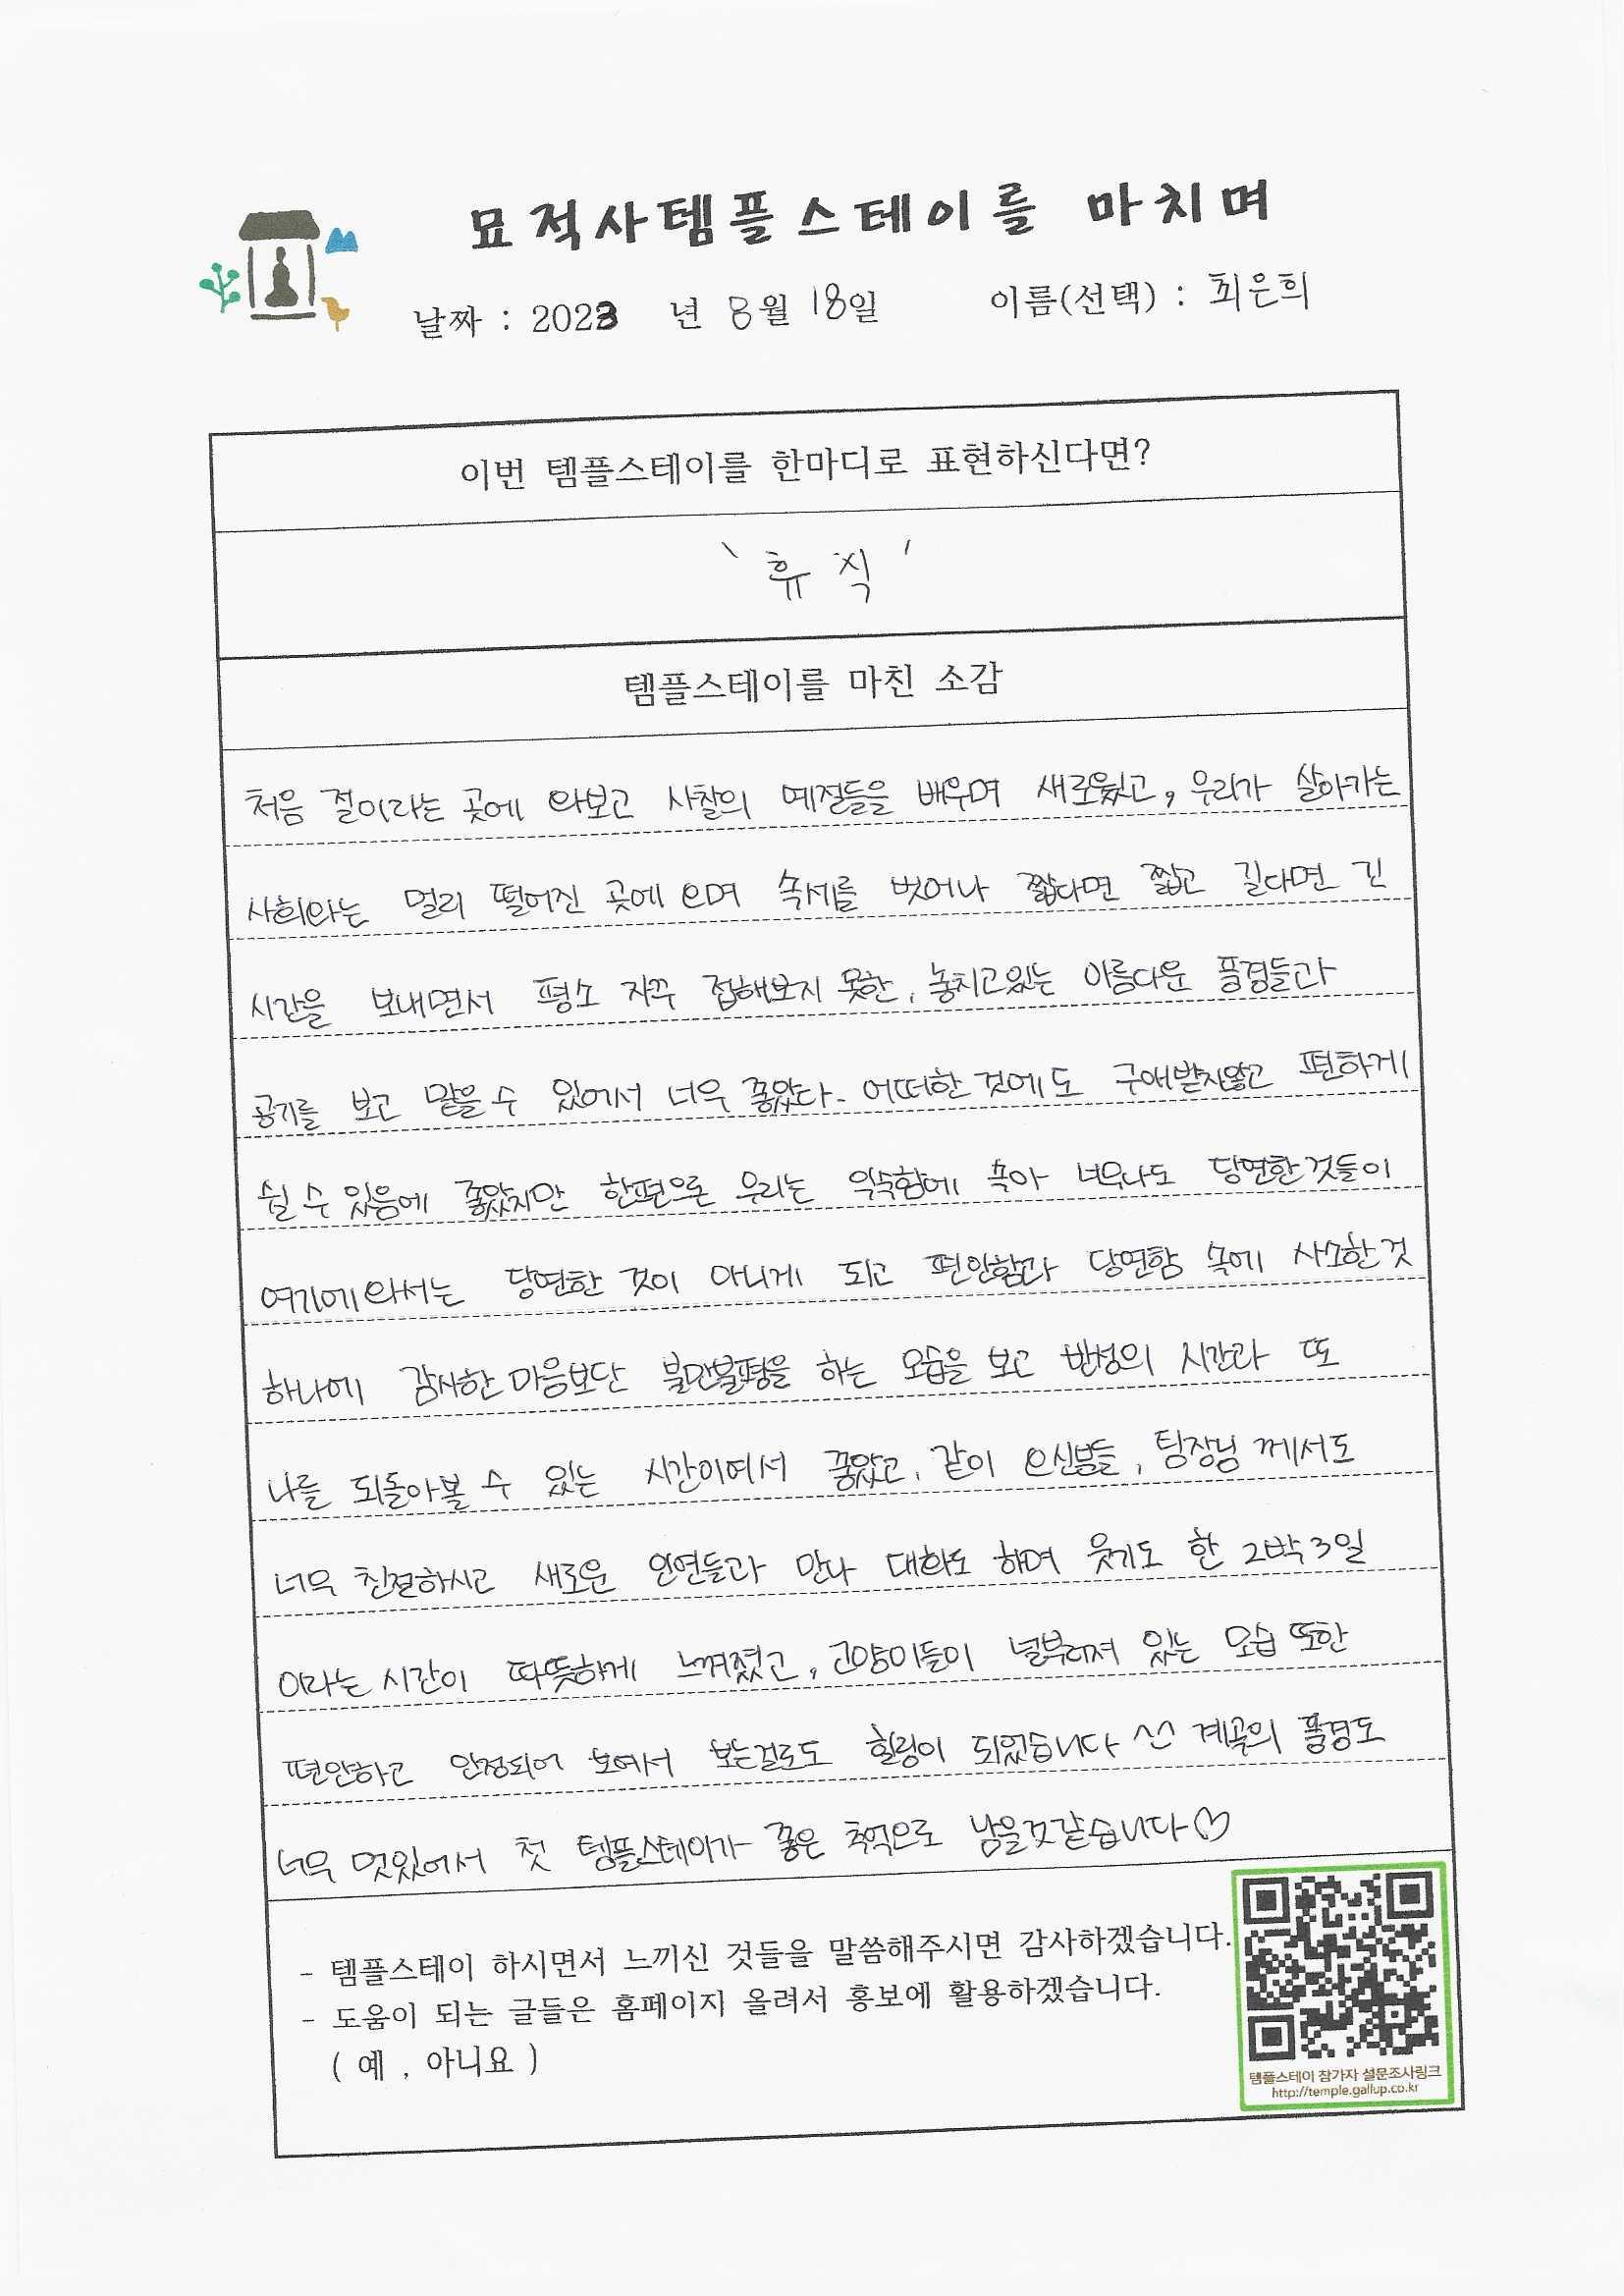 묘적사템플스테이를 마치며
날짜 : 2023 년 8월 18일 이름(선택) : 최은희
이번 템플스테이를 한마디로 표현하신다면?
'휴식'
템플스테이를 마친 소감
처음 절이라는 곳에 와보고 사찰의 예절들을 배우며 새로웠고, 우리가 살아가는
사회와는 멀리 떨어진 곳에 오며 속세를 벗어나 짧다면 짧고 길다면 긴
시간을 보내면서 평소 자주 접해보지 못한, 놓치고있는 아름다운 풍경들과
공기를 보고 맡을 수 있어서 너무 좋았다. 어떠한 것에도 구애받지않고 편하게
쉴 수 있음에 좋았지만 한편으론 우리는 익숙함에 속아 너무나도 당연한 것들이
여기에 와서는 당연한 것이 아니게 되고 편안함과 당연함 속에 사소한 것
하나에 감사한 마음보단 불만불평을 하는 모습을 보고 반성의 시간과 또
나를 되돌아볼 수 있는 시간이여서 좋았고, 같이 오신분들, 팀장님 께서도
너무 친절하시고 새로운 인연들과 만나 대화도 하며 웃기도 한 2박 3일
이라는 시간이 따뜻하게 느껴졌고, 고양이들이 널부러져 있는 모습 또한
편안하고 안정되어 보여서 보는걸로도 힐링이 되었습니다 ^^ 계곡의 풍경도
너무 멋있어서 첫 템플스테이가 좋은 추억으로 남을것같습니다♡
- 템플스테이 하시면서 느끼신 것들을 말씀해주시면 감사하겠습니다.
- 도움이 되는 글들은 홈페이지 올려서 홍보에 활용하겠습니다.
( 예 , 아니요 )
템플스테이 참가자 설문조사링크
http://temple.gallup.co.kr